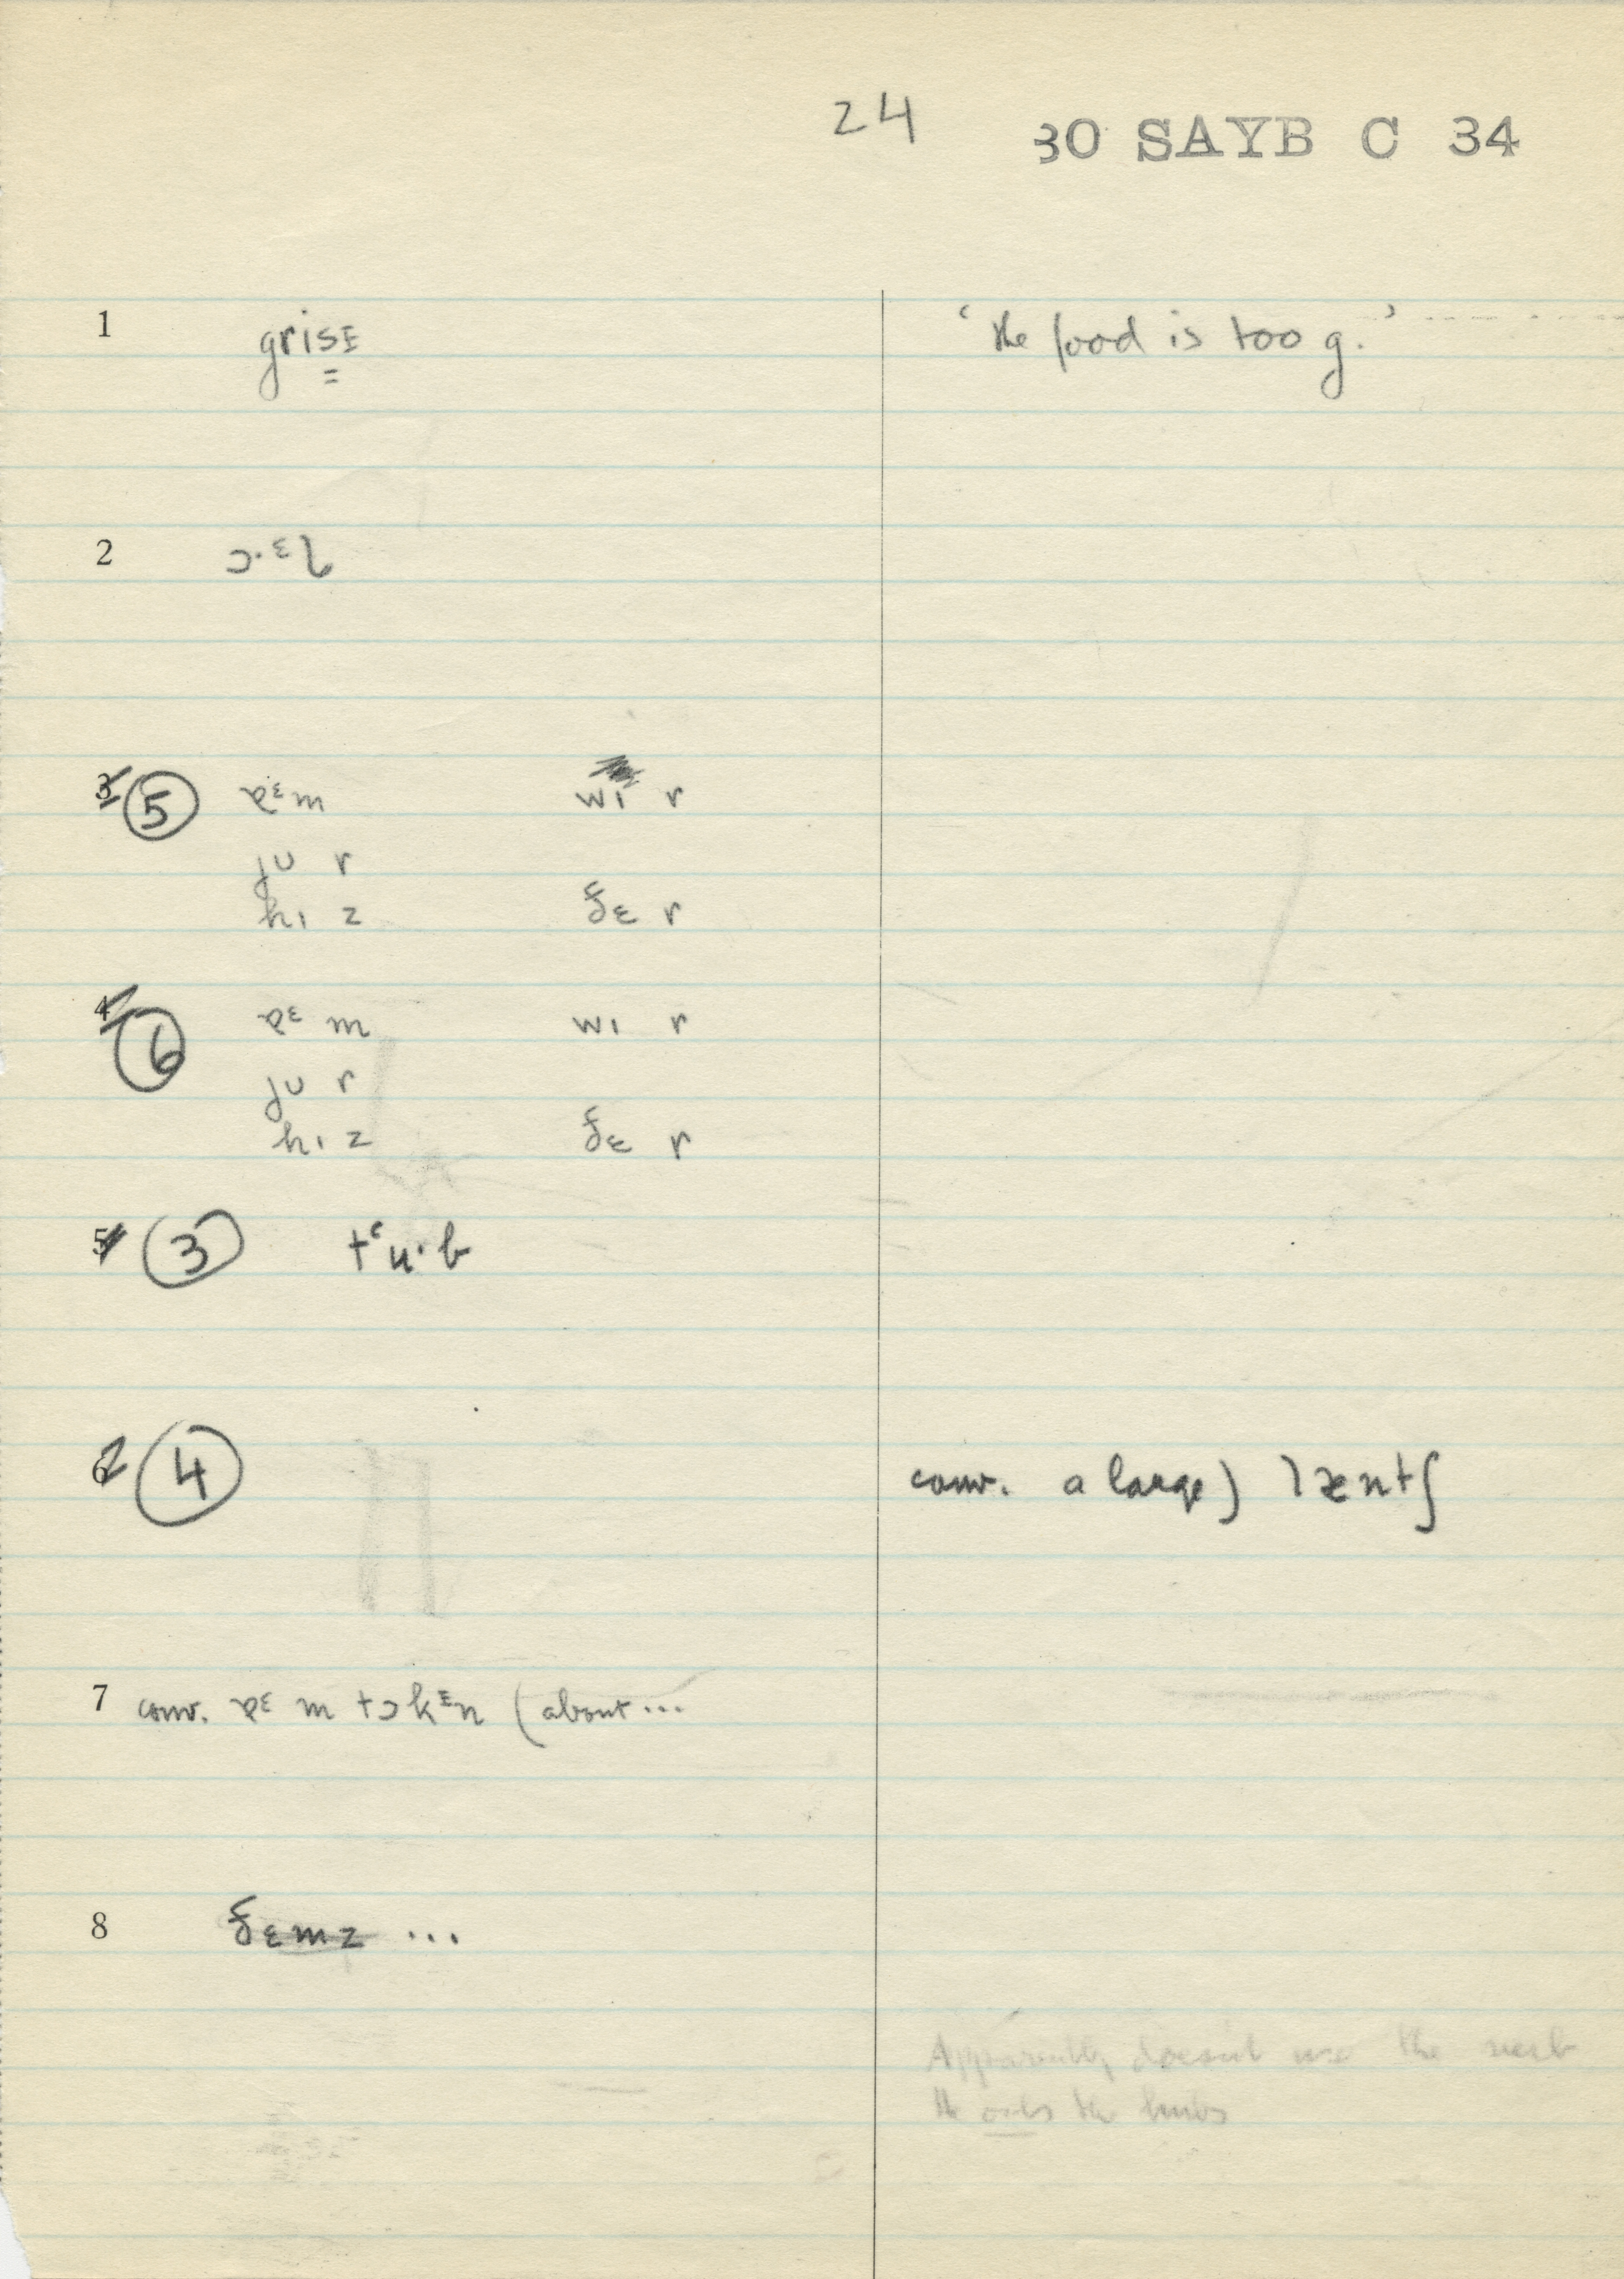 24 30 SAYB C 34
1 grisɪ 'the food is too g.'
2 ɔ·ɛl
3 5 ɐɛm wɪ r
ju r
hɪ z ðɛ r
4 6 ɐɛ m wɪ r
ju r
hɪ z ðɛ r
5 3 tʻu·b
6 4 conv. a large) ræntʃ
7 conv. ɐɛ m tɔkɪn (about...
8 ðɛmz ...
Apparently doesn't use the verb
He the limbs